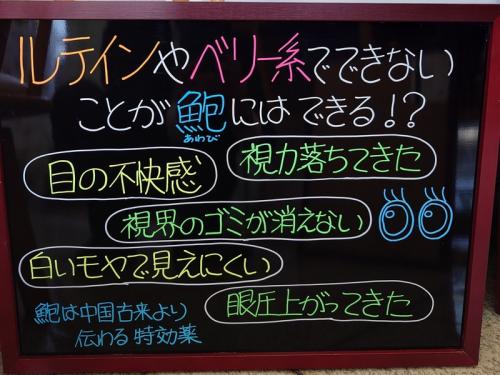 ルテインやベリー系でできない
ことが鮑にはできる!?
あわび
目の不快感
視力落ちてきた
視界のゴミが消えない
白いモヤで見えにくい
眼圧上がってきた
鮑は中国古来より
伝わる特効薬